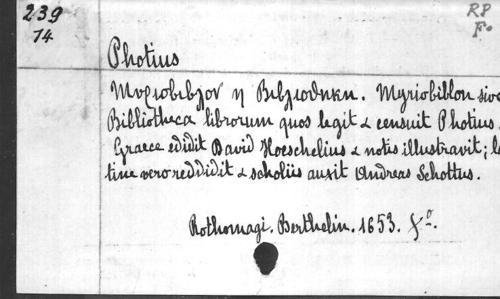 239
14
RP
F.
Photius
Μυριοβιβλον η Βιβλιοθηκη. Myriobiblon sive
Bibliotheca librorum quos legit & censuit Photius.
Graece edidit David Hoeschelius & notis illustravit; la
tine vero reddidit & scholiis auxit Andreas Schottus.
Rothomagi. Berthelin. 1653. fo.